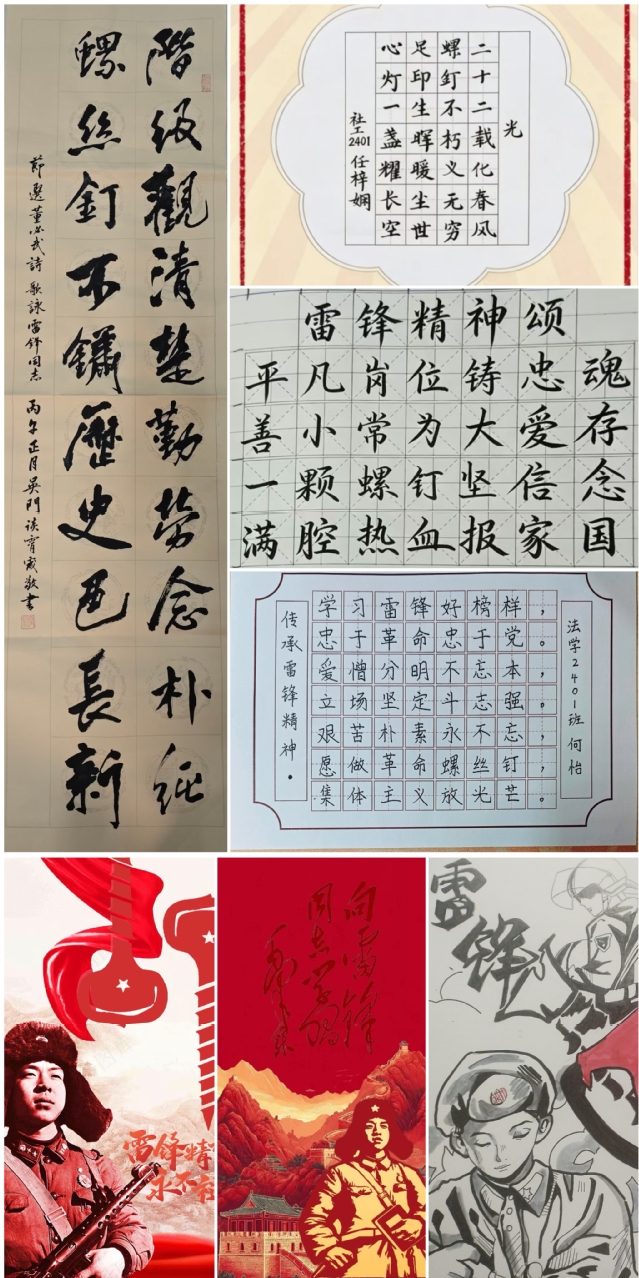 階级觀清楚勤劳念朴纯
螺絲釘不鏽歷史色長新
節選董必武詩歌詠雷锋同志 丙午正月吳門談宵
光
二十二载化春风
螺釘不朽义无穷
足印生晖暖尘世
心灯一盏耀长空
社工2401 任梓娴
雷锋精神颂
平凡岗位铸忠魂
善小常为大爱存
一颗螺钉坚信念
满腔热血报家国
传承雷锋精神。
学习雷锋好榜样，
忠于革命忠于党。
爱憎分明不忘本，
立场坚定斗志强。
艰苦朴素永不忘，
愿做革命螺丝钉，
集体主义放光芒。
法学2401班 何怡
雷锋精
永不
向雷锋
同志学习
毛泽东
雷锋